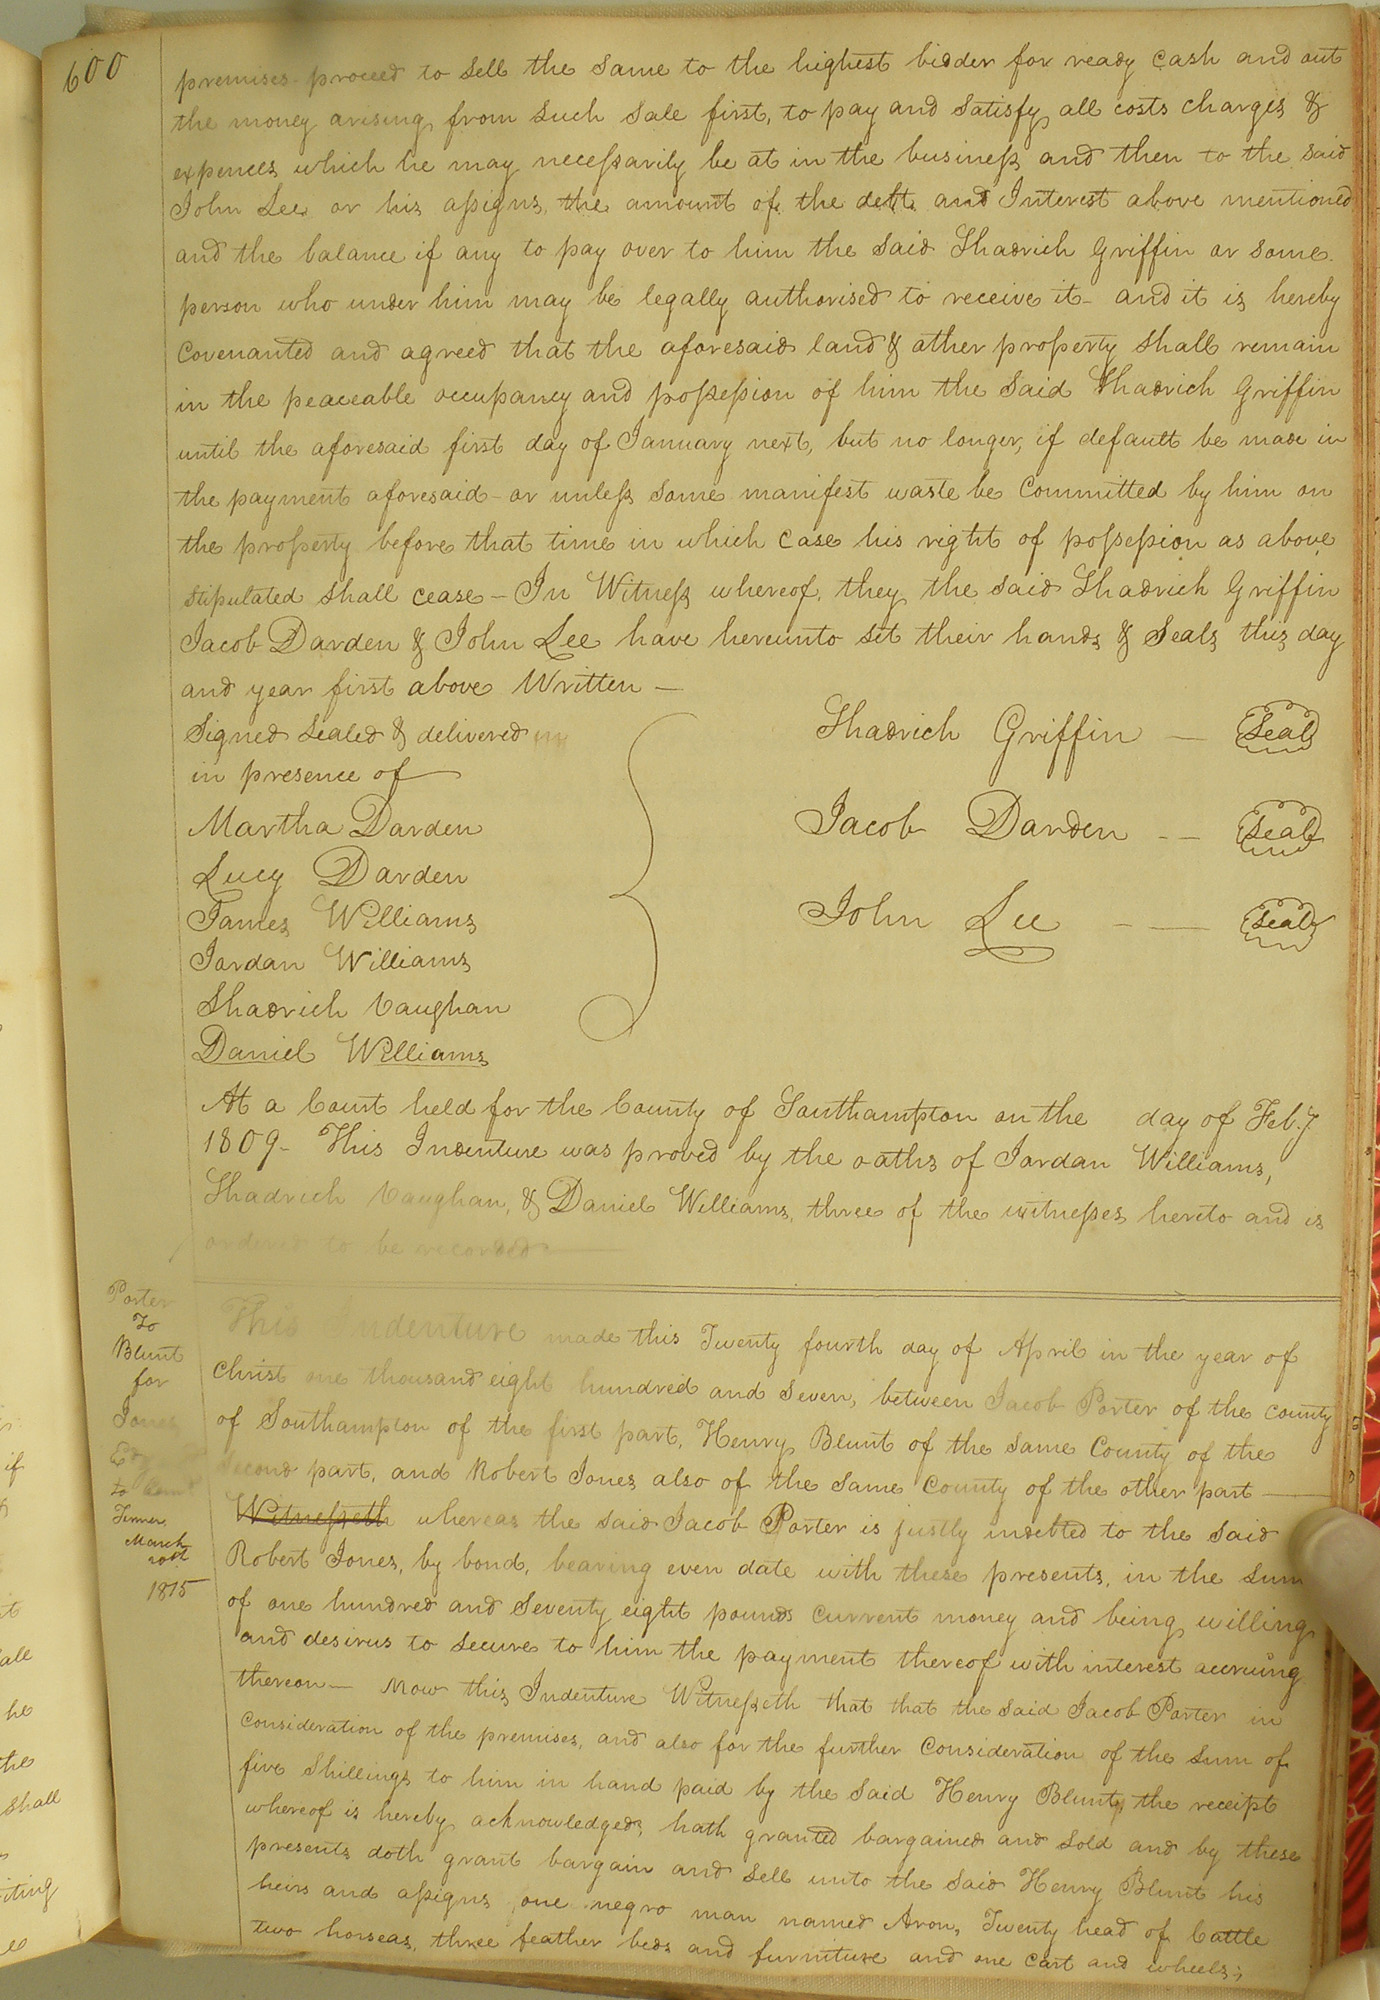 600
premises proceed to sell the same to the highest bidder for ready cash and out
the money arising from such sale first, to pay and satisfy all costs charges &
expences which he may necessarily be at in the business and then to the said
John Lee or his assigns, the amount of the debt and Interest above mentioned
and the balance if any to pay over to him the said Shadrich Griffin or some
person who under him may be legally authorised to receive it - and it is hereby
Covenanted and agreed that the aforesaid land & other property shall remain
in the peaceable occupancy and possession of him the said Shadrich Griffin
until the aforesaid first day of January next, but no longer, if default be made in
the payment aforesaid - or unless some manifest waste be Committed by him on
the property before that time in which case his right of possession as above
stipulated shall cease - In Witness whereof, they the said Shadrich Griffin
Jacob Darden & John Lee have hereunto set their hands & Seals this day
and year first above Written -
Signed Sealed & delivered
in presence of
Martha Darden
Lucy Darden
James Williams
Jordan Williams
Shadrich Vaughan
Daniel Williams
Shadrich Griffin - Seal
Jacob Darden - - Seal
John Lee - - Seal
At a Court held for the County of Southampton on the day of Feb.y
1809 - This Indenture was proved by the oaths of Jordan Williams,
Shadrich Vaughan, & Daniel Williams, three of the witnesses hereto and is
ordered to be recorded
Porter
To
Blunt
for
Jones
to
March
20th
1815
This Indenture made this Twenty fourth day of April in the year of
Christ one thousand eight hundred and Seven, between Jacob Porter of the county
of Southampton of the first part, Henry Blunt of the same County of the
second part, and Robert Jones also of the same County of the other part -
Witnesseth whereas the said Jacob Porter is justly indebted to the said
Robert Jones, by bond, bearing even date with these presents, in the sum
of one hundred and Seventy eight pounds current money and being willing
and desirus to secure to him the payment thereof with interest accruing
thereon - Now this Indenture Witnesseth that that the said Jacob Porter in
consideration of the premises, and also for the further Consideration of the sum of
five Shillings to him in hand paid by the said Henry Blunt, the receipt
whereof is hereby acknowledged, hath granted bargained and sold and by these
presents doth grant bargain and sell unto the said Henry Blunt his
heirs and assigns one negro man named Aron, Twenty head of Cattle
two horseas, three feather beds and furniture and one cart and wheels;